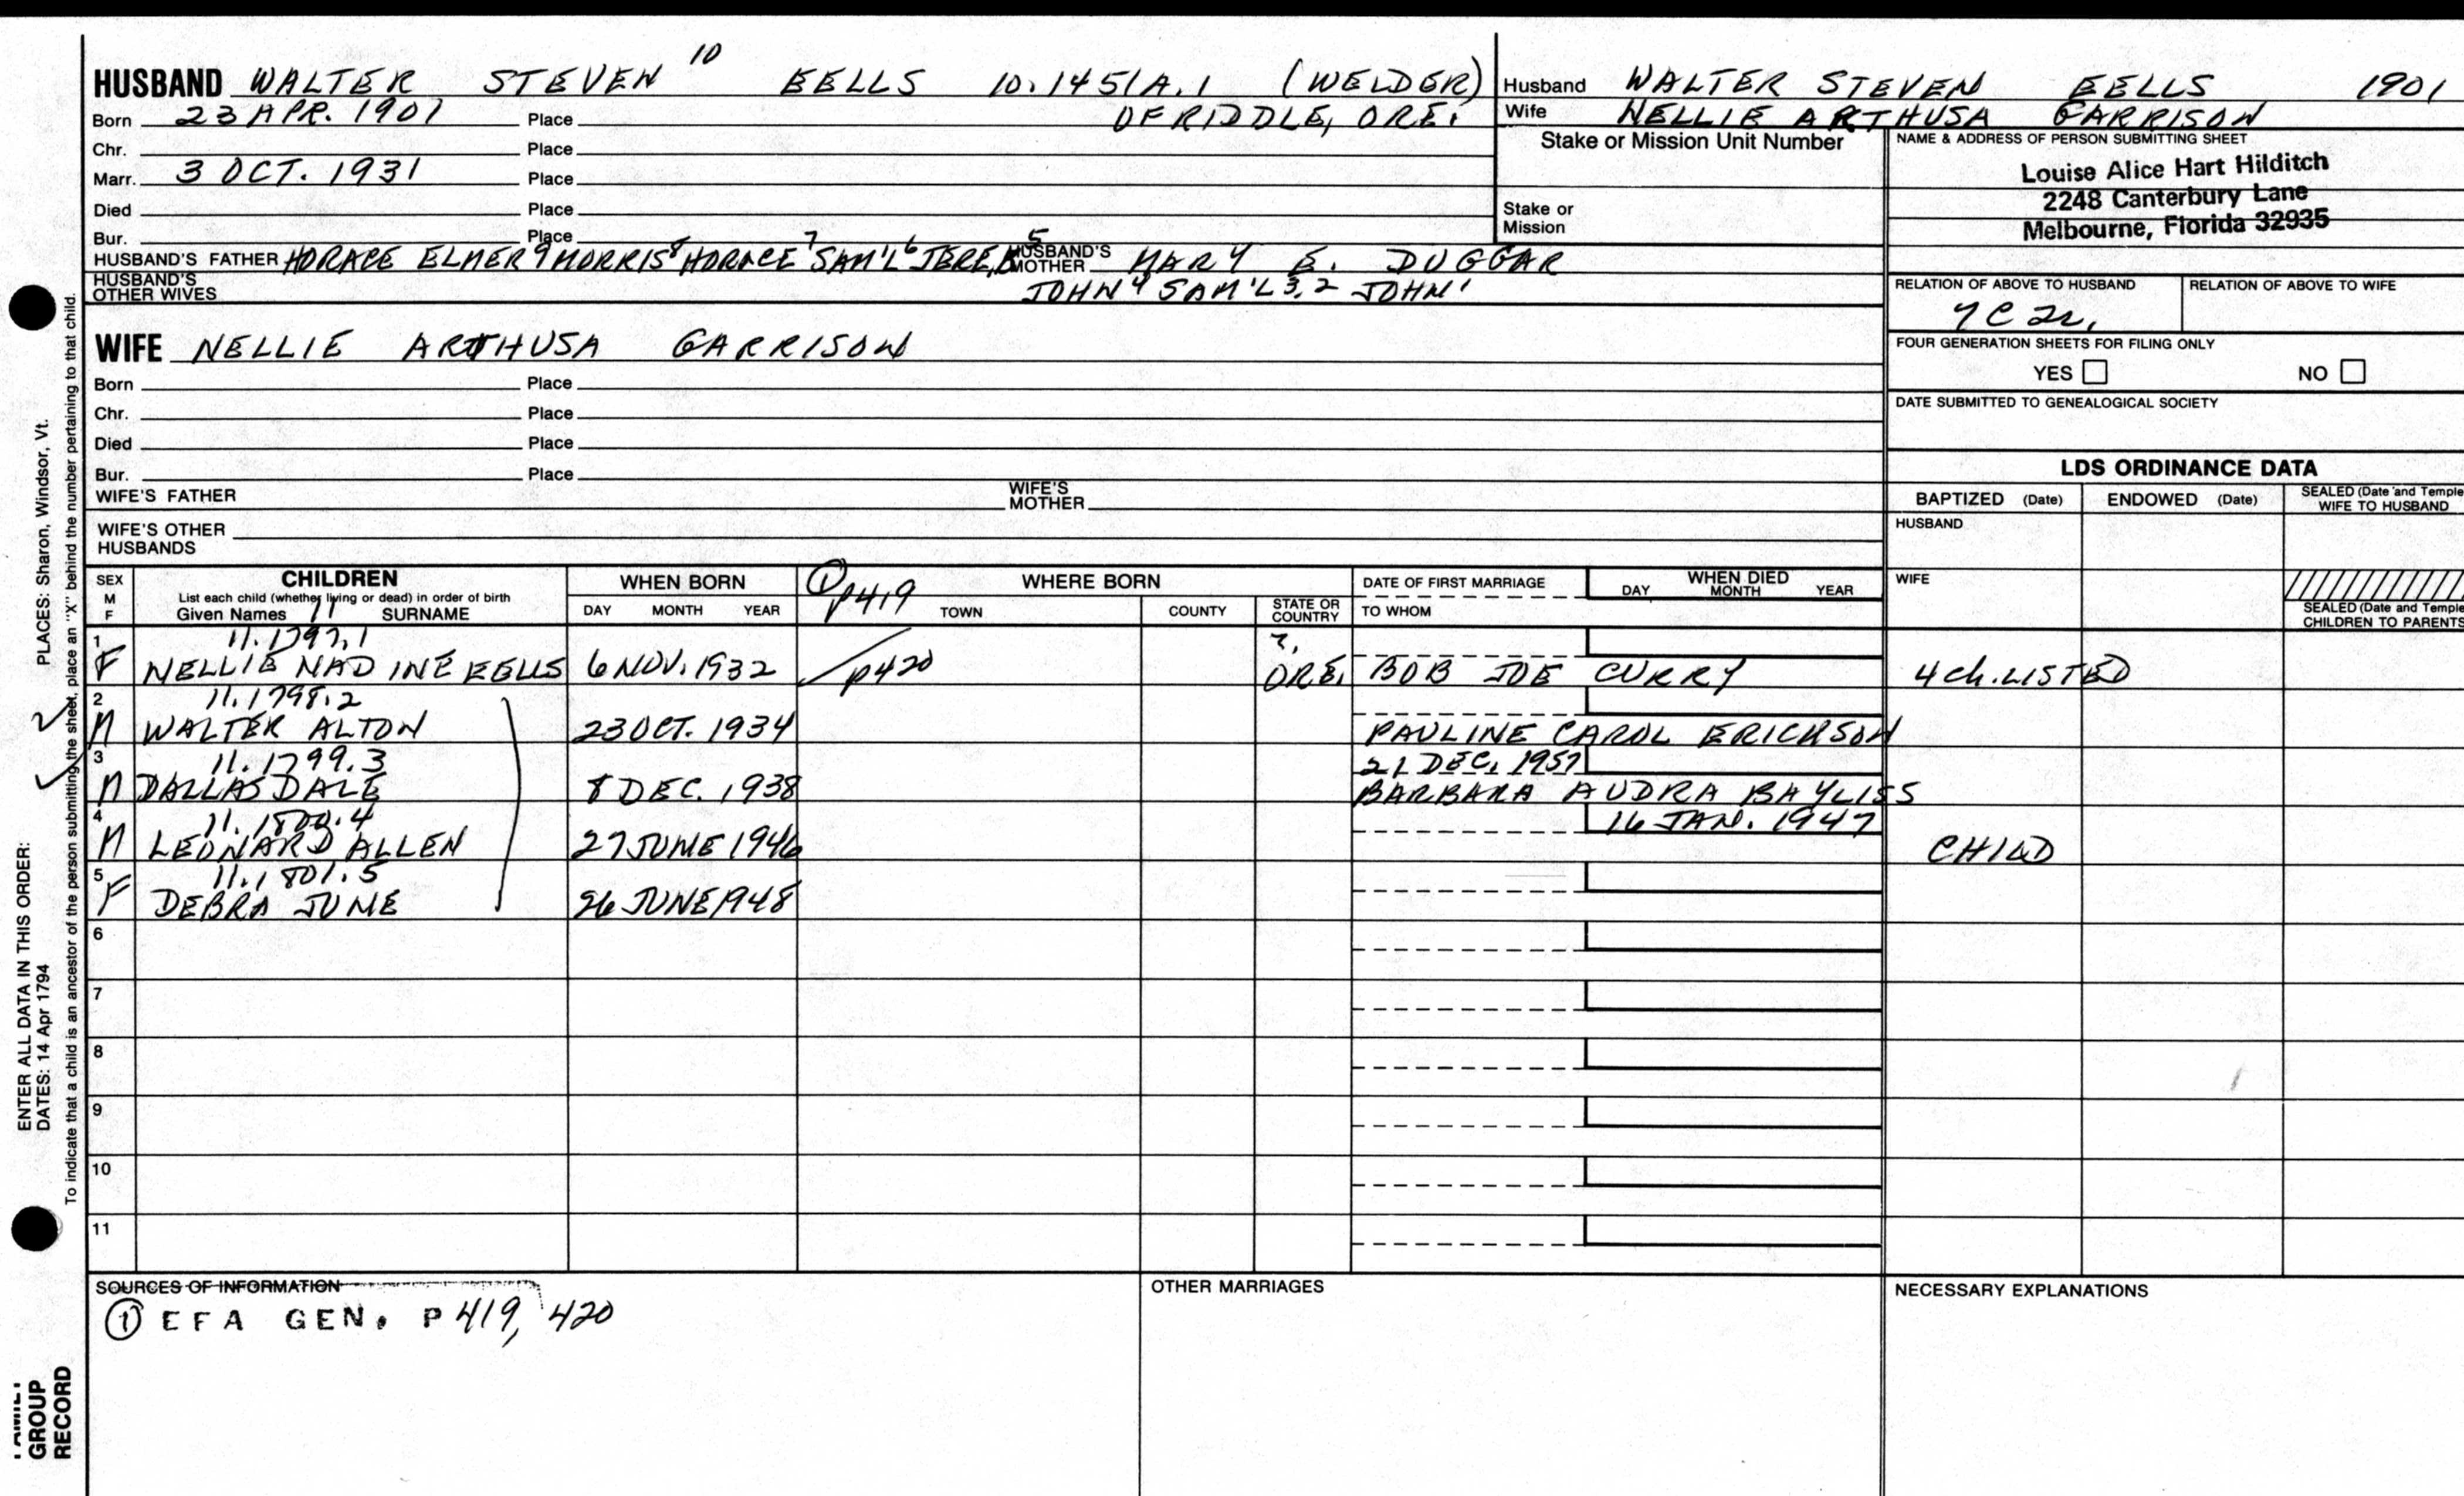 HUSBAND WALTER STEVEN 10 EELLS 10.1451A.1 (WELDER)
Born 23 APR. 1901 Place OF RIDDLE, ORE.
Chr. Place
Marr. 3 OCT. 1931 Place
Died Place
Bur. Place
HUSBAND'S FATHER HORACE ELMER 9 MORRIS 8 HORACE 7 SAM'L 6 JERE. 5 HUSBAND'S MOTHER MARY E. DUGGAR
HUSBAND'S OTHER WIVES JOHN 4 SAM'L 3,2 JOHN 1
Husband WALTER STEVEN EELLS 1901
Wife NELLIE ARTHUSA GARRISON
Stake or Mission Unit Number
Stake or
Mission
NAME & ADDRESS OF PERSON SUBMITTING SHEET
Louise Alice Hart Hilditch
2248 Canterbury Lane
Melbourne, Florida 32935
RELATION OF ABOVE TO HUSBAND RELATION OF ABOVE TO WIFE
7C2r.
FOUR GENERATION SHEETS FOR FILING ONLY
YES NO
DATE SUBMITTED TO GENEALOGICAL SOCIETY
WIFE NELLIE ARTHUSA GARRISON
Born Place
Chr. Place
Died Place
Bur. Place
WIFE'S FATHER WIFE'S MOTHER
WIFE'S OTHER
HUSBANDS
LDS ORDINANCE DATA
BAPTIZED (Date) ENDOWED (Date) SEALED (Date and Temple
WIFE TO HUSBAND
HUSBAND
WIFE
SEALED (Date and Temple
CHILDREN TO PARENTS
SEX
M
F
CHILDREN
List each child (whether living or dead) in order of birth
Given Names 11 SURNAME
WHEN BORN
DAY MONTH YEAR
① p419 WHERE BORN
TOWN COUNTY STATE OR COUNTRY
DATE OF FIRST MARRIAGE
TO WHOM
WHEN DIED
DAY MONTH YEAR
1 11.1797.1 ?,
F NELLIE NADINE EELLS 6 NOV. 1932 p420 ORE. BOB JOE CURRY 4 Ch. LISTED
2 11.1798.2
M WALTER ALTON 23 OCT. 1934 PAULINE CAROL ERICKSON
3 11.1799.3 21 DEC. 1957
M DALLAS DALE 8 DEC. 1938 BARBARA AUDRA BAYLISS
4 11.1800.4 16 JAN. 1947
M LEONARD ALLEN 27 JUNE 1946 CHILD
5 11.1801.5
F DEBRA JUNE 26 JUNE 1948
6
7
8
9
10
11
SOURCES OF INFORMATION
① EFA GEN. P 419, 420
OTHER MARRIAGES
NECESSARY EXPLANATIONS
ENTER ALL DATA IN THIS ORDER:
DATES: 14 Apr 1794
PLACES: Sharon, Windsor, Vt.
To indicate that a child is an ancestor of the person submitting the sheet, place an "X" behind the number pertaining to that child.
FAMILY
GROUP
RECORD